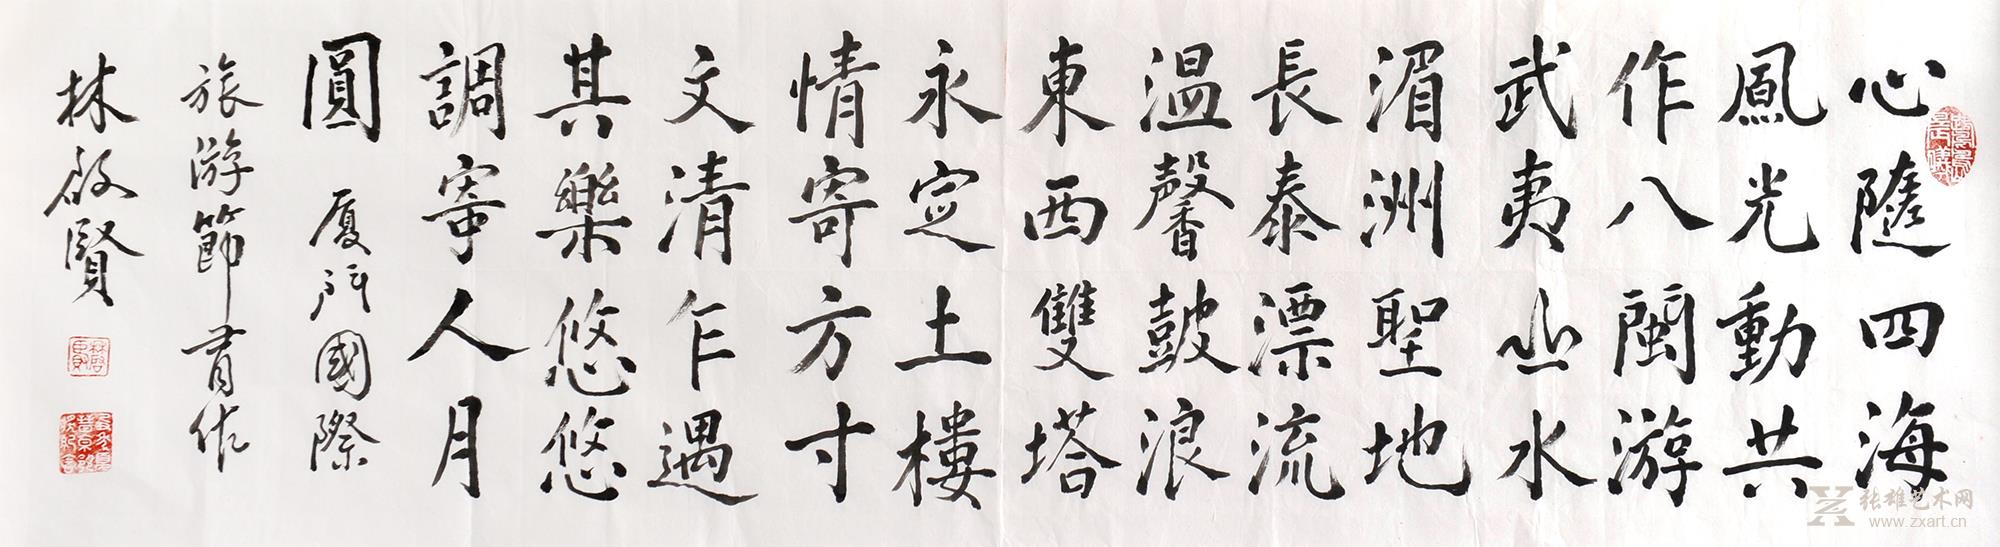 心隨四海
鳳光動共
作八閩游
武夷山水
湄洲聖地
長泰漂流
溫馨鼓浪
東西雙塔
永定土樓
情寄方寸
文清乍遇
其樂悠悠
調寄人月
圓 厦门國際
旅游節有作
林啟賢
张雄艺术网
www.zxart.cn